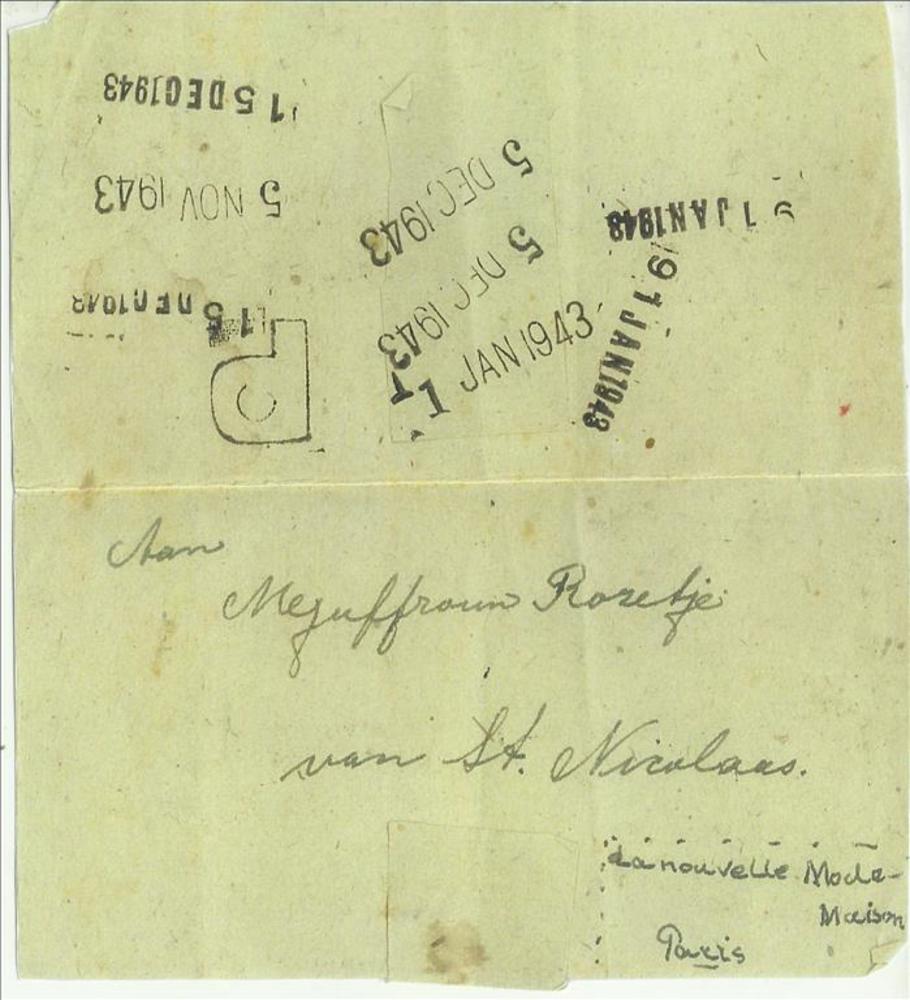 15 DEC 1943
5 NOV 1943
5 DEC 1943
5 DEC 1943
1 JAN 1943
9 1 JAN 1943
9 1 JAN 1943
15 DEC 1943
Aan
Mejuffrouw Rosetje
van St. Nicolaas.
La nouvelle Mode-
Maison
Paris